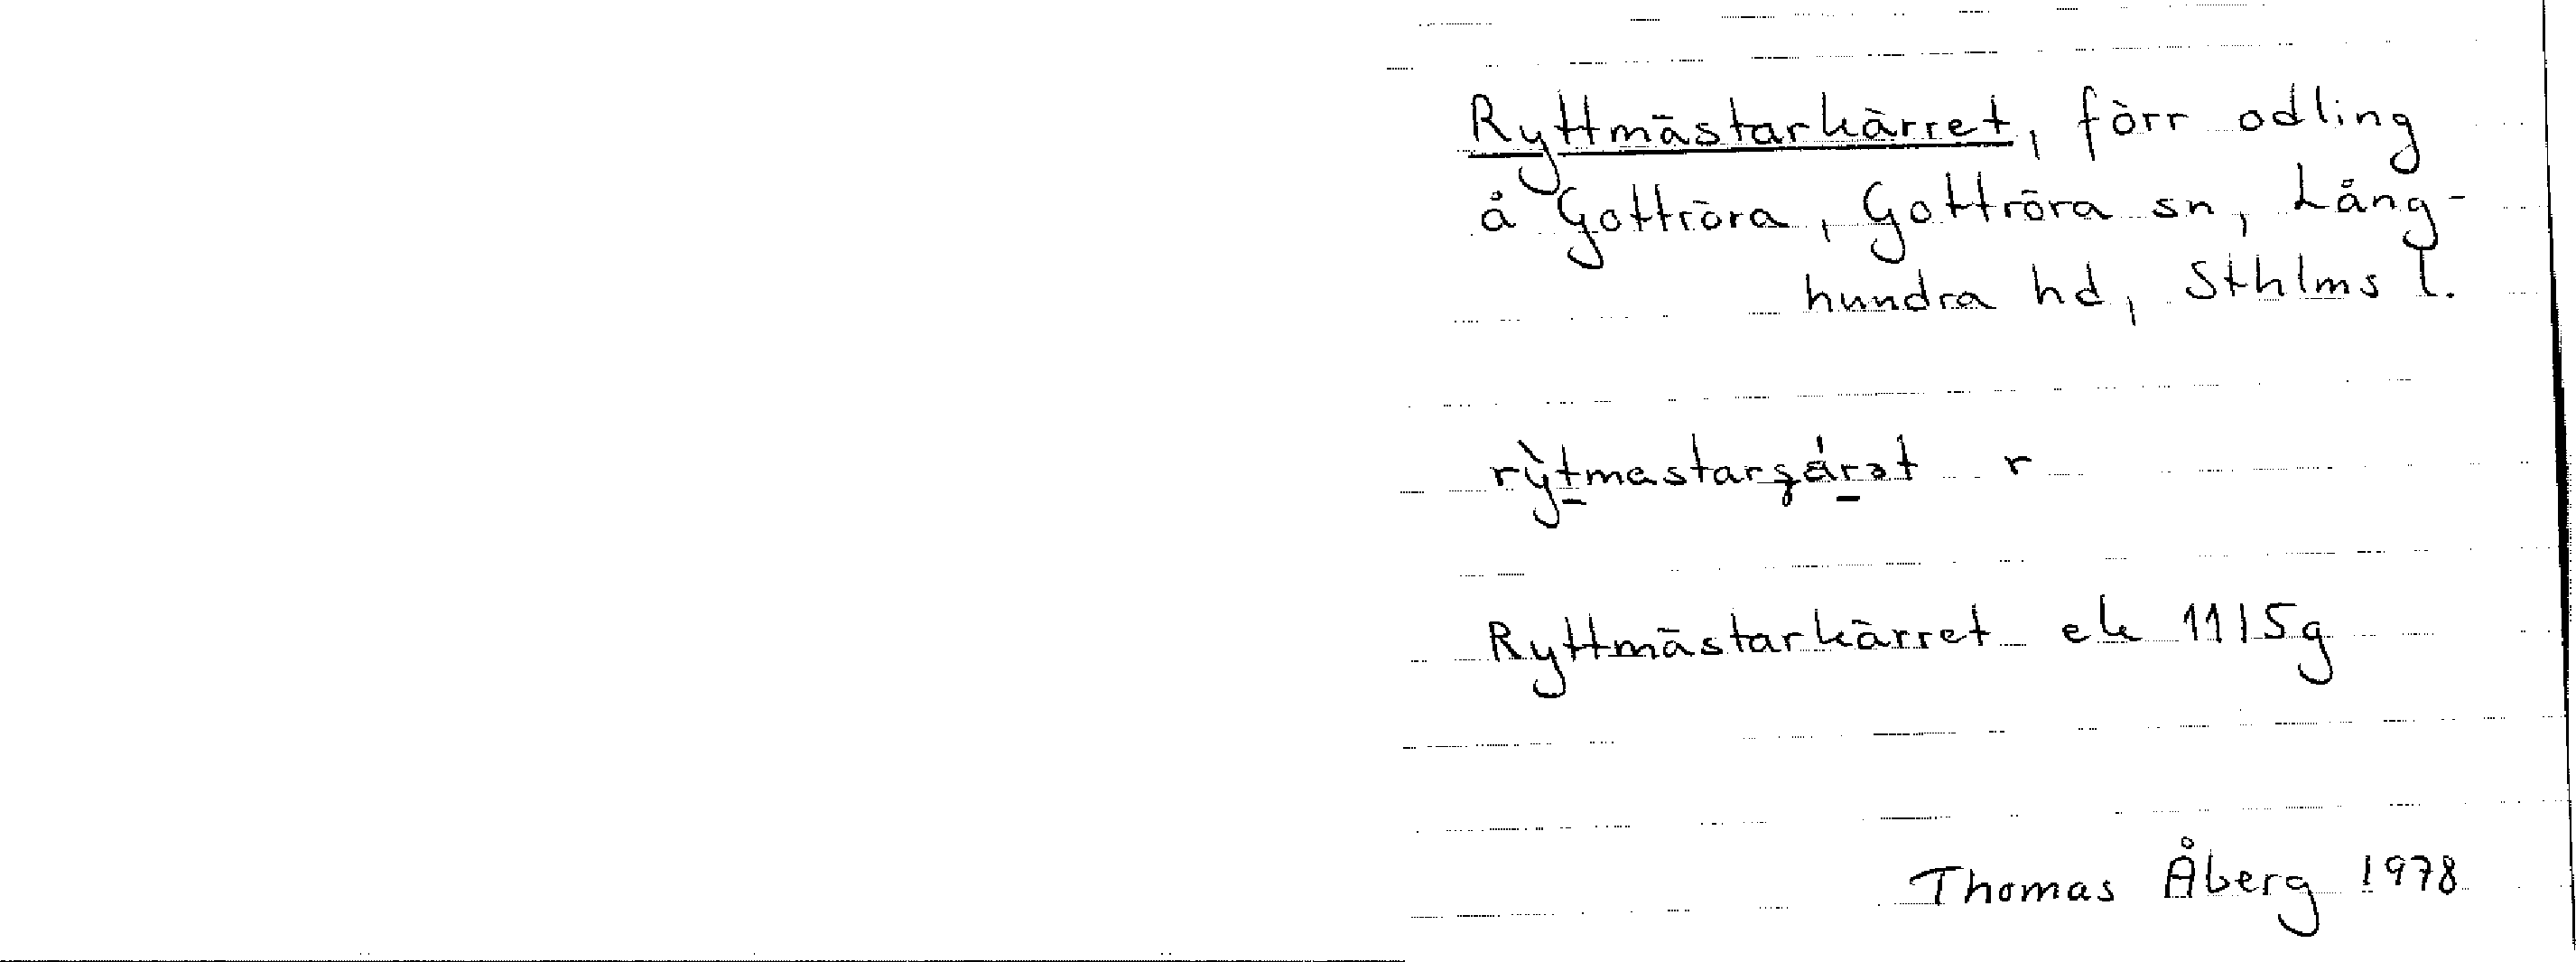 Ryttmästarkärret, förr odling
å Gottröra, Gottröra sn, Lång-
hundra hd, Sthlms l.
rỳtmastarʂárət r
Ryttmästarkärret ek 11I5g
Thomas Åberg 1978